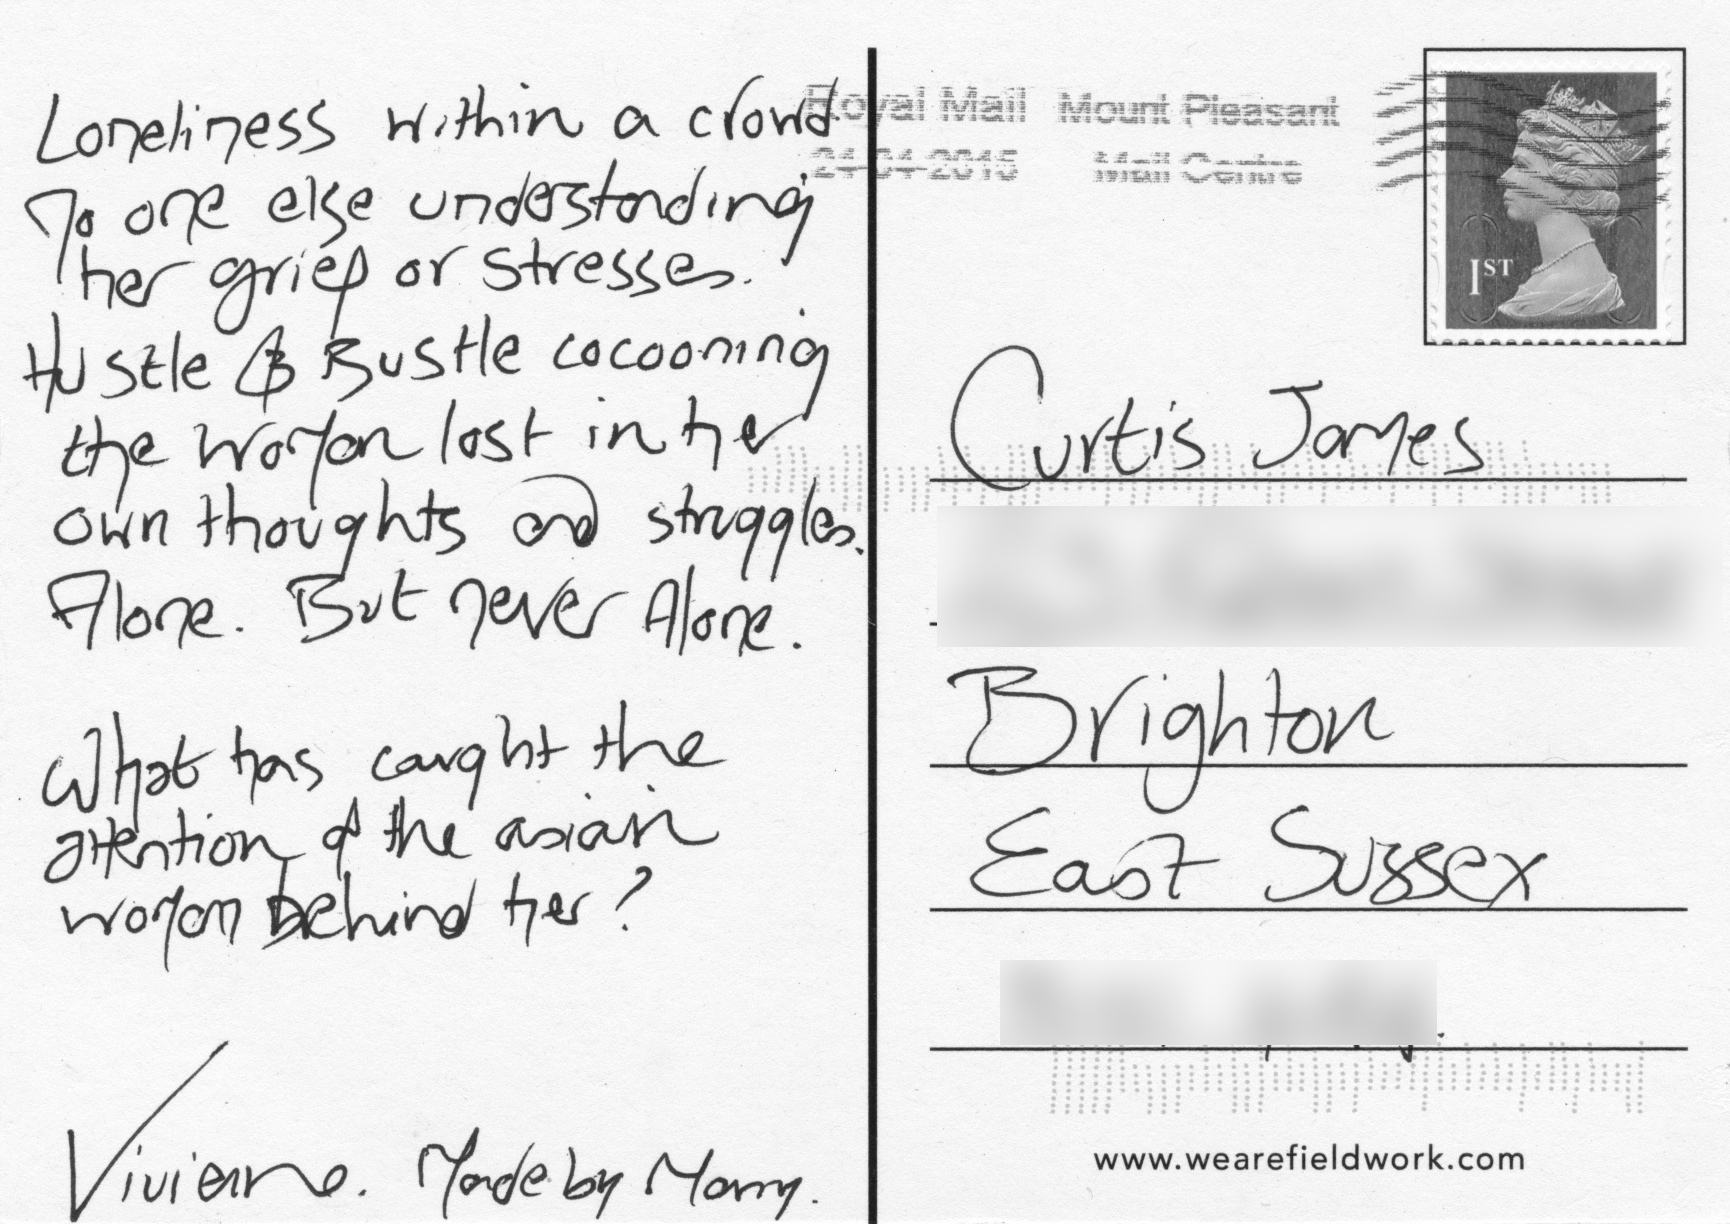 Loneliness within a crowd
No one else understanding
her grief or stresses.
Hustle & Bustle cocooning
the woman lost in her
own thoughts and struggles.
Alone. But never Alone.
What has caught the
attention of the asian
woman behind her?
Vivienne. Made by Mammy.
Royal Mail Mount Pleasant
24-04-2015 Mail Centre
1ST
Curtis James
Brighton
East Sussex
www.wearefieldwork.com